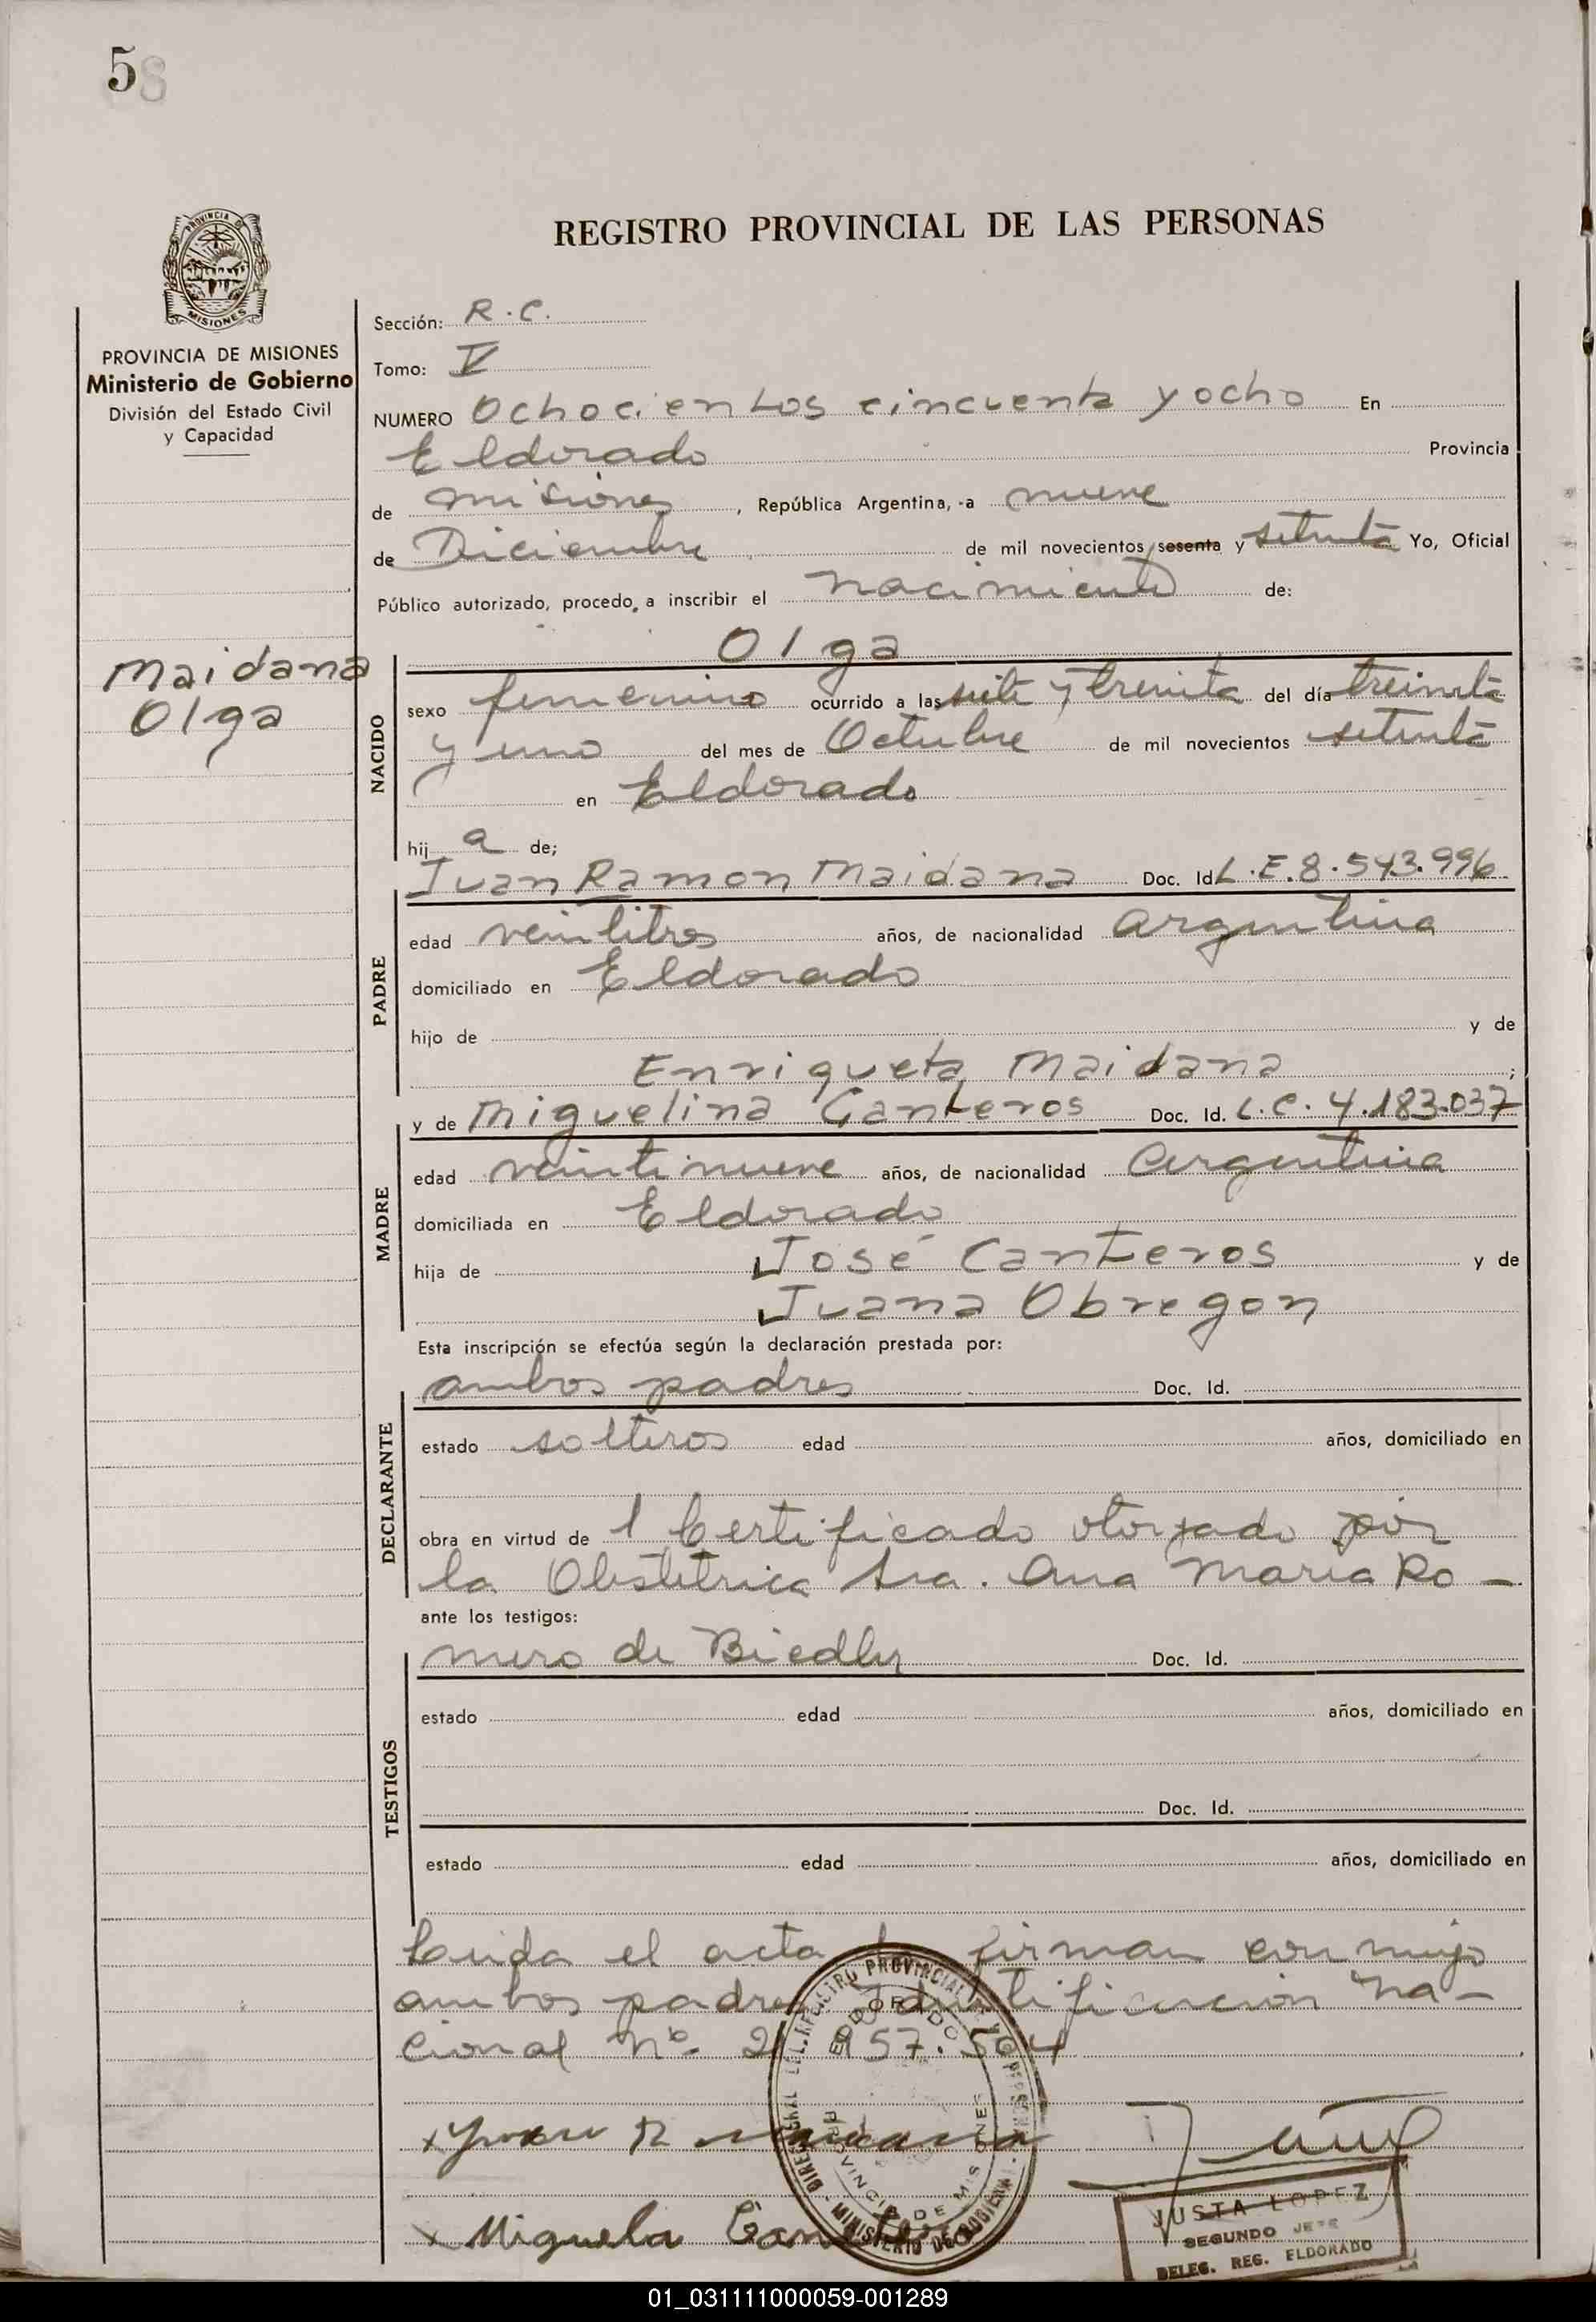 58
REGISTRO PROVINCIAL DE LAS PERSONAS
PROVINCIA DE
MISIONES
PROVINCIA DE MISIONES
Ministerio de Gobierno
División del Estado Civil
y Capacidad
Maidana
Olga
Sección: R.C.
Tomo: V
NUMERO Ochocientos cincuenta y ocho En
Eldorado Provincia
de Misiones, República Argentina, a nueve
de Diciembre de mil novecientos sesenta y setenta Yo, Oficial
Público autorizado, procedo a inscribir el nacimiento de:
Olga
NACIDO
sexo femenino ocurrido a las siete y treinta del día treinta
y uno del mes de Octubre de mil novecientos setenta
en Eldorado
hij a de;
Juan Ramon Maidana Doc. Id. L.E.8.543.996
PADRE
edad veintitres años, de nacionalidad argentina
domiciliado en Eldorado
hijo de y de
Enriqueta Maidana ;
y de Miguelina Canteros Doc. Id. L.C. 4.183.037
MADRE
edad veintinueve años, de nacionalidad argentina
domiciliada en Eldorado
hija de José Canteros y de
Juana Obregon
Esta inscripción se efectúa según la declaración prestada por:
ambos padres Doc. Id.
DECLARANTE
estado solteros edad años, domiciliado en
obra en virtud de 1 Certificado otorgado por
la Obstetrica Sra. Ana Maria Ro-
ante los testigos:
mero de Biedler Doc. Id.
TESTIGOS
estado edad años, domiciliado en
Doc. Id.
estado edad años, domiciliado en
Leida el acta firman conmigo
ambos padres Identificacion Na-
cional Nº. 21 957.504
x Juan R Maidana
x Miguela Canteros
REGISTRO PROVINCIAL
ELDORADO
PROVINCIA DE MISIONES
MINISTERIO DE GOBIERNO
JUSTA LOPEZ
SEGUNDO JEFE
DELEG. REG. ELDORADO
01_031111000059-001289